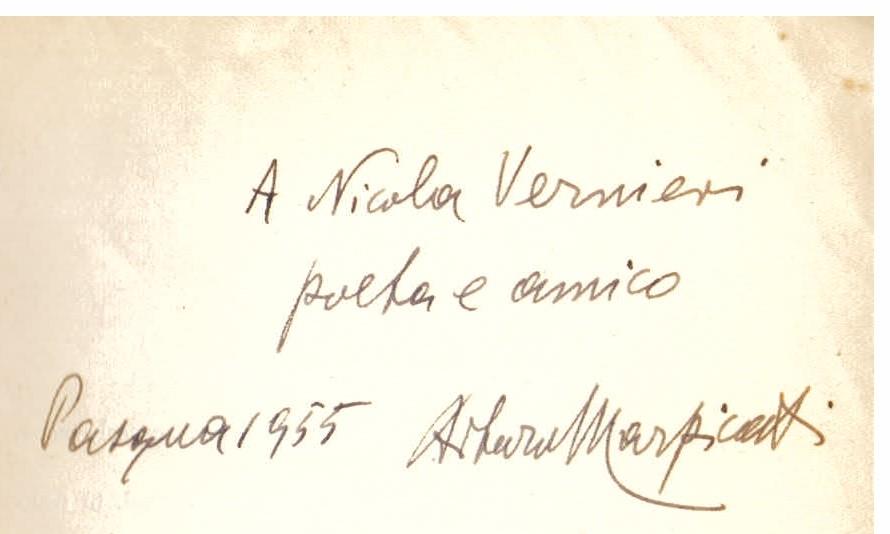 A Nicola Vernieri
poeta e amico
Pasqua 1955 Arturo Marpicati